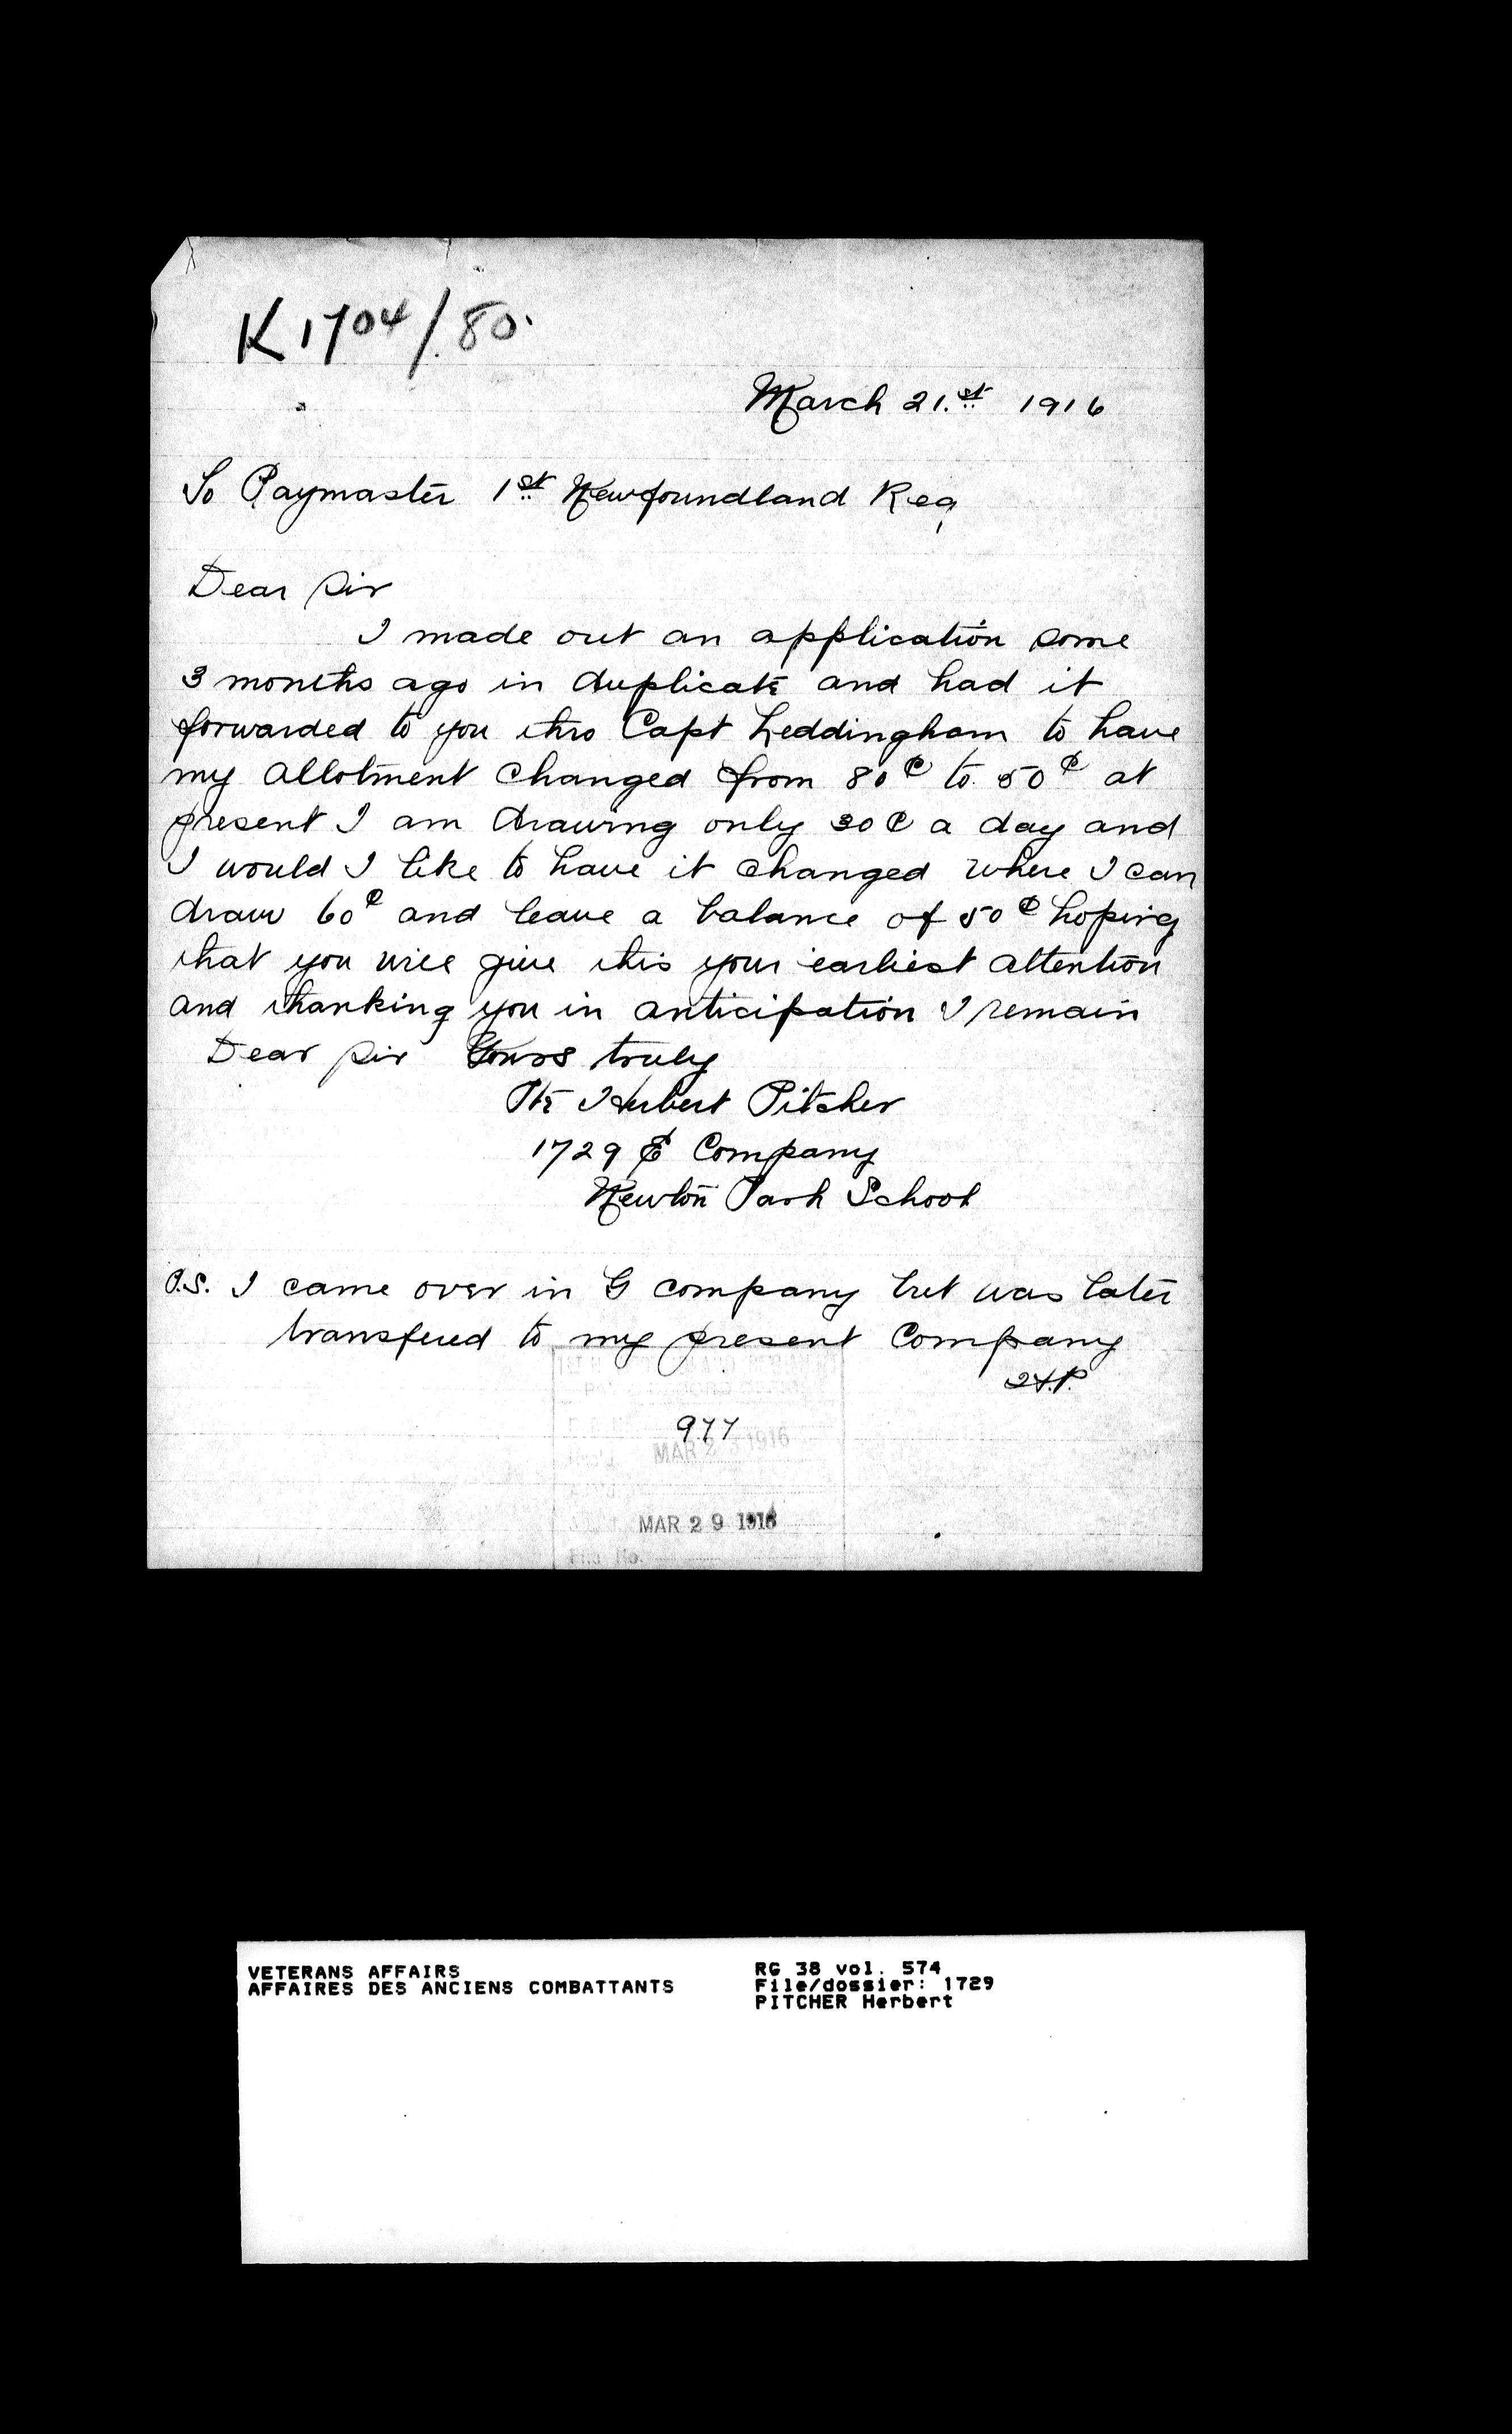 K 1704/.80.
March 21.st 1916
To Paymaster 1st Newfoundland Reg
Dear Sir
I made out an application some
3 months ago in duplicate and had it
forwarded to you thro Capt Leddingham to have
my allotment changed from 80¢ to 50¢ at
present I am drawing only 30¢ a day and
I would I like to have it changed where I can
draw 60¢ and leave a balance of 50¢ hoping
that you will give this your earliest attention
and thanking you in anticipation I remain
Dear Sir Yours truly
Pte Herbert Pitcher
1729 E Company
Newton Park School
P.S. I came over in G company but was later
transfered to my present Company
H.P.
977
MAR 2 1916
MAR 29 1916
File No.
VETERANS AFFAIRS
AFFAIRES DES ANCIENS COMBATTANTS
RG 38 vol. 574
File/dossier: 1729
PITCHER Herbert